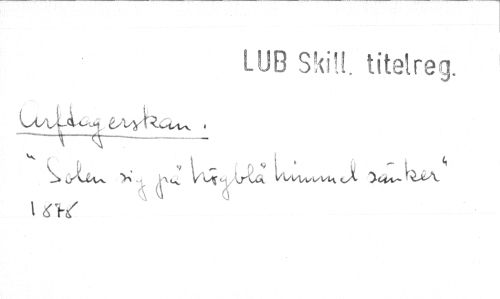 LUB Skill. titelreg.
Arftagerskan.
"Solen sig på högblå himmel sänker"
1878